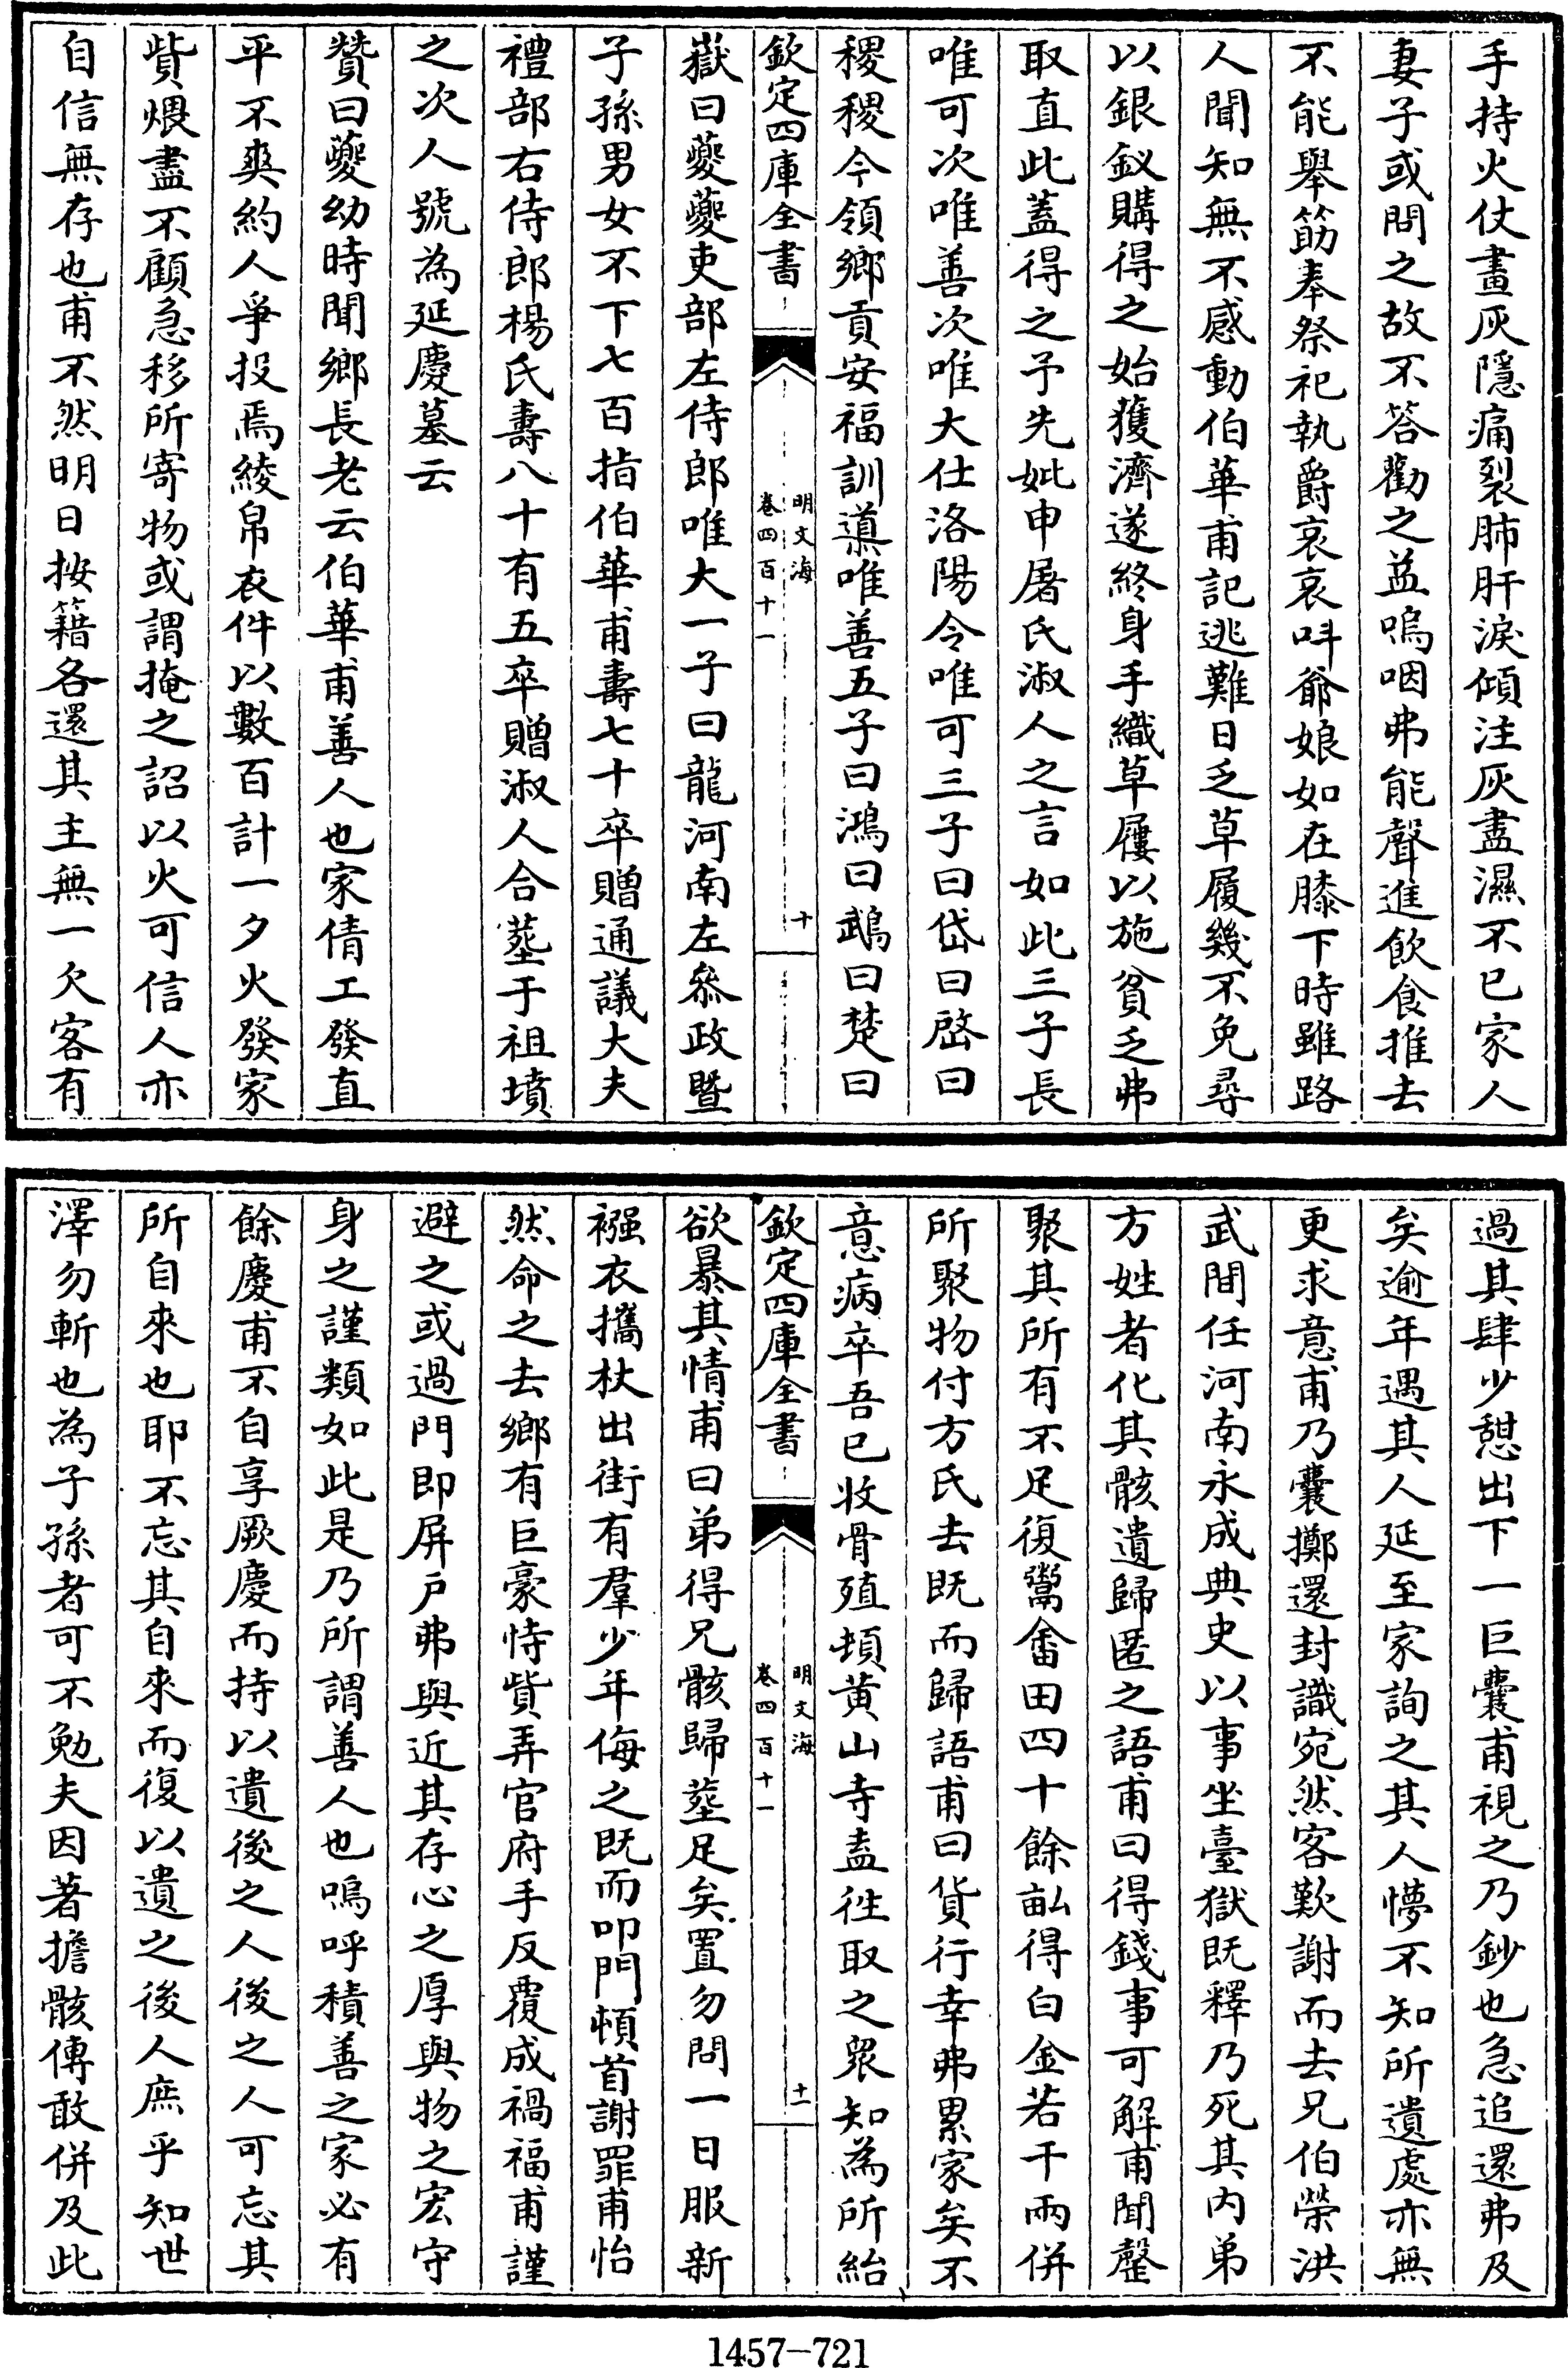 手持火仗畫灰隱痛裂肺肝淚傾注灰盡濕不已家人
妻子或問之故不答勸之益嗚咽弗能聲進飲食推去
不能舉筯奉祭祀執爵哀哀呌爺娘如在膝下時雖路
人聞知無不感動伯華甫記逃難日乏草履幾不免尋
以銀釵購得之始獲濟遂終身手織草屨以施貧乏弗
取直此蓋得之予先妣申屠氏淑人之言如此三子長
唯可次唯善次唯大仕洛陽令唯可三子曰岱曰啓曰
稷稷今領鄉貢安福訓導唯善五子曰鴻曰鵡曰楚曰
欽定四庫全書
明文海
卷四百十一
十
嶽曰夔夔吏部左侍郎唯大一子曰龍河南左叅政暨
子孫男女不下七百指伯華甫壽七十卒贈通議大夫
禮部右侍郎楊氏壽八十有五卒贈淑人合塟于祖墳
之次人號為延慶墓云
贊曰夔幼時聞鄉長老云伯華甫善人也家倩工發直
平不爽約人爭投焉綾帛衣件以數百計一夕火發家
貲煨盡不顧急移所寄物或謂掩之詔以火可信人亦
自信無存也甫不然明日按籍各還其主無一欠客有
過其肆少憩出下一巨囊甫視之乃鈔也急追還弗及
矣逾年遇其人延至家詢之其人懜不知所遺處亦無
更求意甫乃囊擲還封識宛然客歎謝而去兄伯榮洪
武間任河南永成典史以事坐臺獄既釋乃死其内弟
方姓者化其骸遺歸匿之語甫曰得錢事可解甫聞罄
聚其所有不足復鬻畬田四十餘畝得白金若干兩併
所聚物付方氏去既而歸語甫曰貨行幸弗累家矣不
意病卒吾已收骨殖頓黄山寺盍徃取之衆知為所紿
欽定四庫全書
明文海
卷四百十一
十一
欲暴其情甫曰弟得兄骸歸塟足矣置勿問一日服新
襁衣攜杖出街有羣少年侮之既而叩門頓首謝罪甫怡
然命之去鄉有巨豪恃貲弄官府手反覆成禍福甫謹
避之或過門即屏户弗與近其存心之厚與物之宏守
身之謹類如此是乃所謂善人也嗚呼積善之家必有
餘慶甫不自享厥慶而持以遺後之人後之人可忘其
所自來也耶不忘其自來而復以遺之後人庶乎知世
澤勿斬也為子孫者可不勉夫因著擔骸傳敢併及此
1457-721